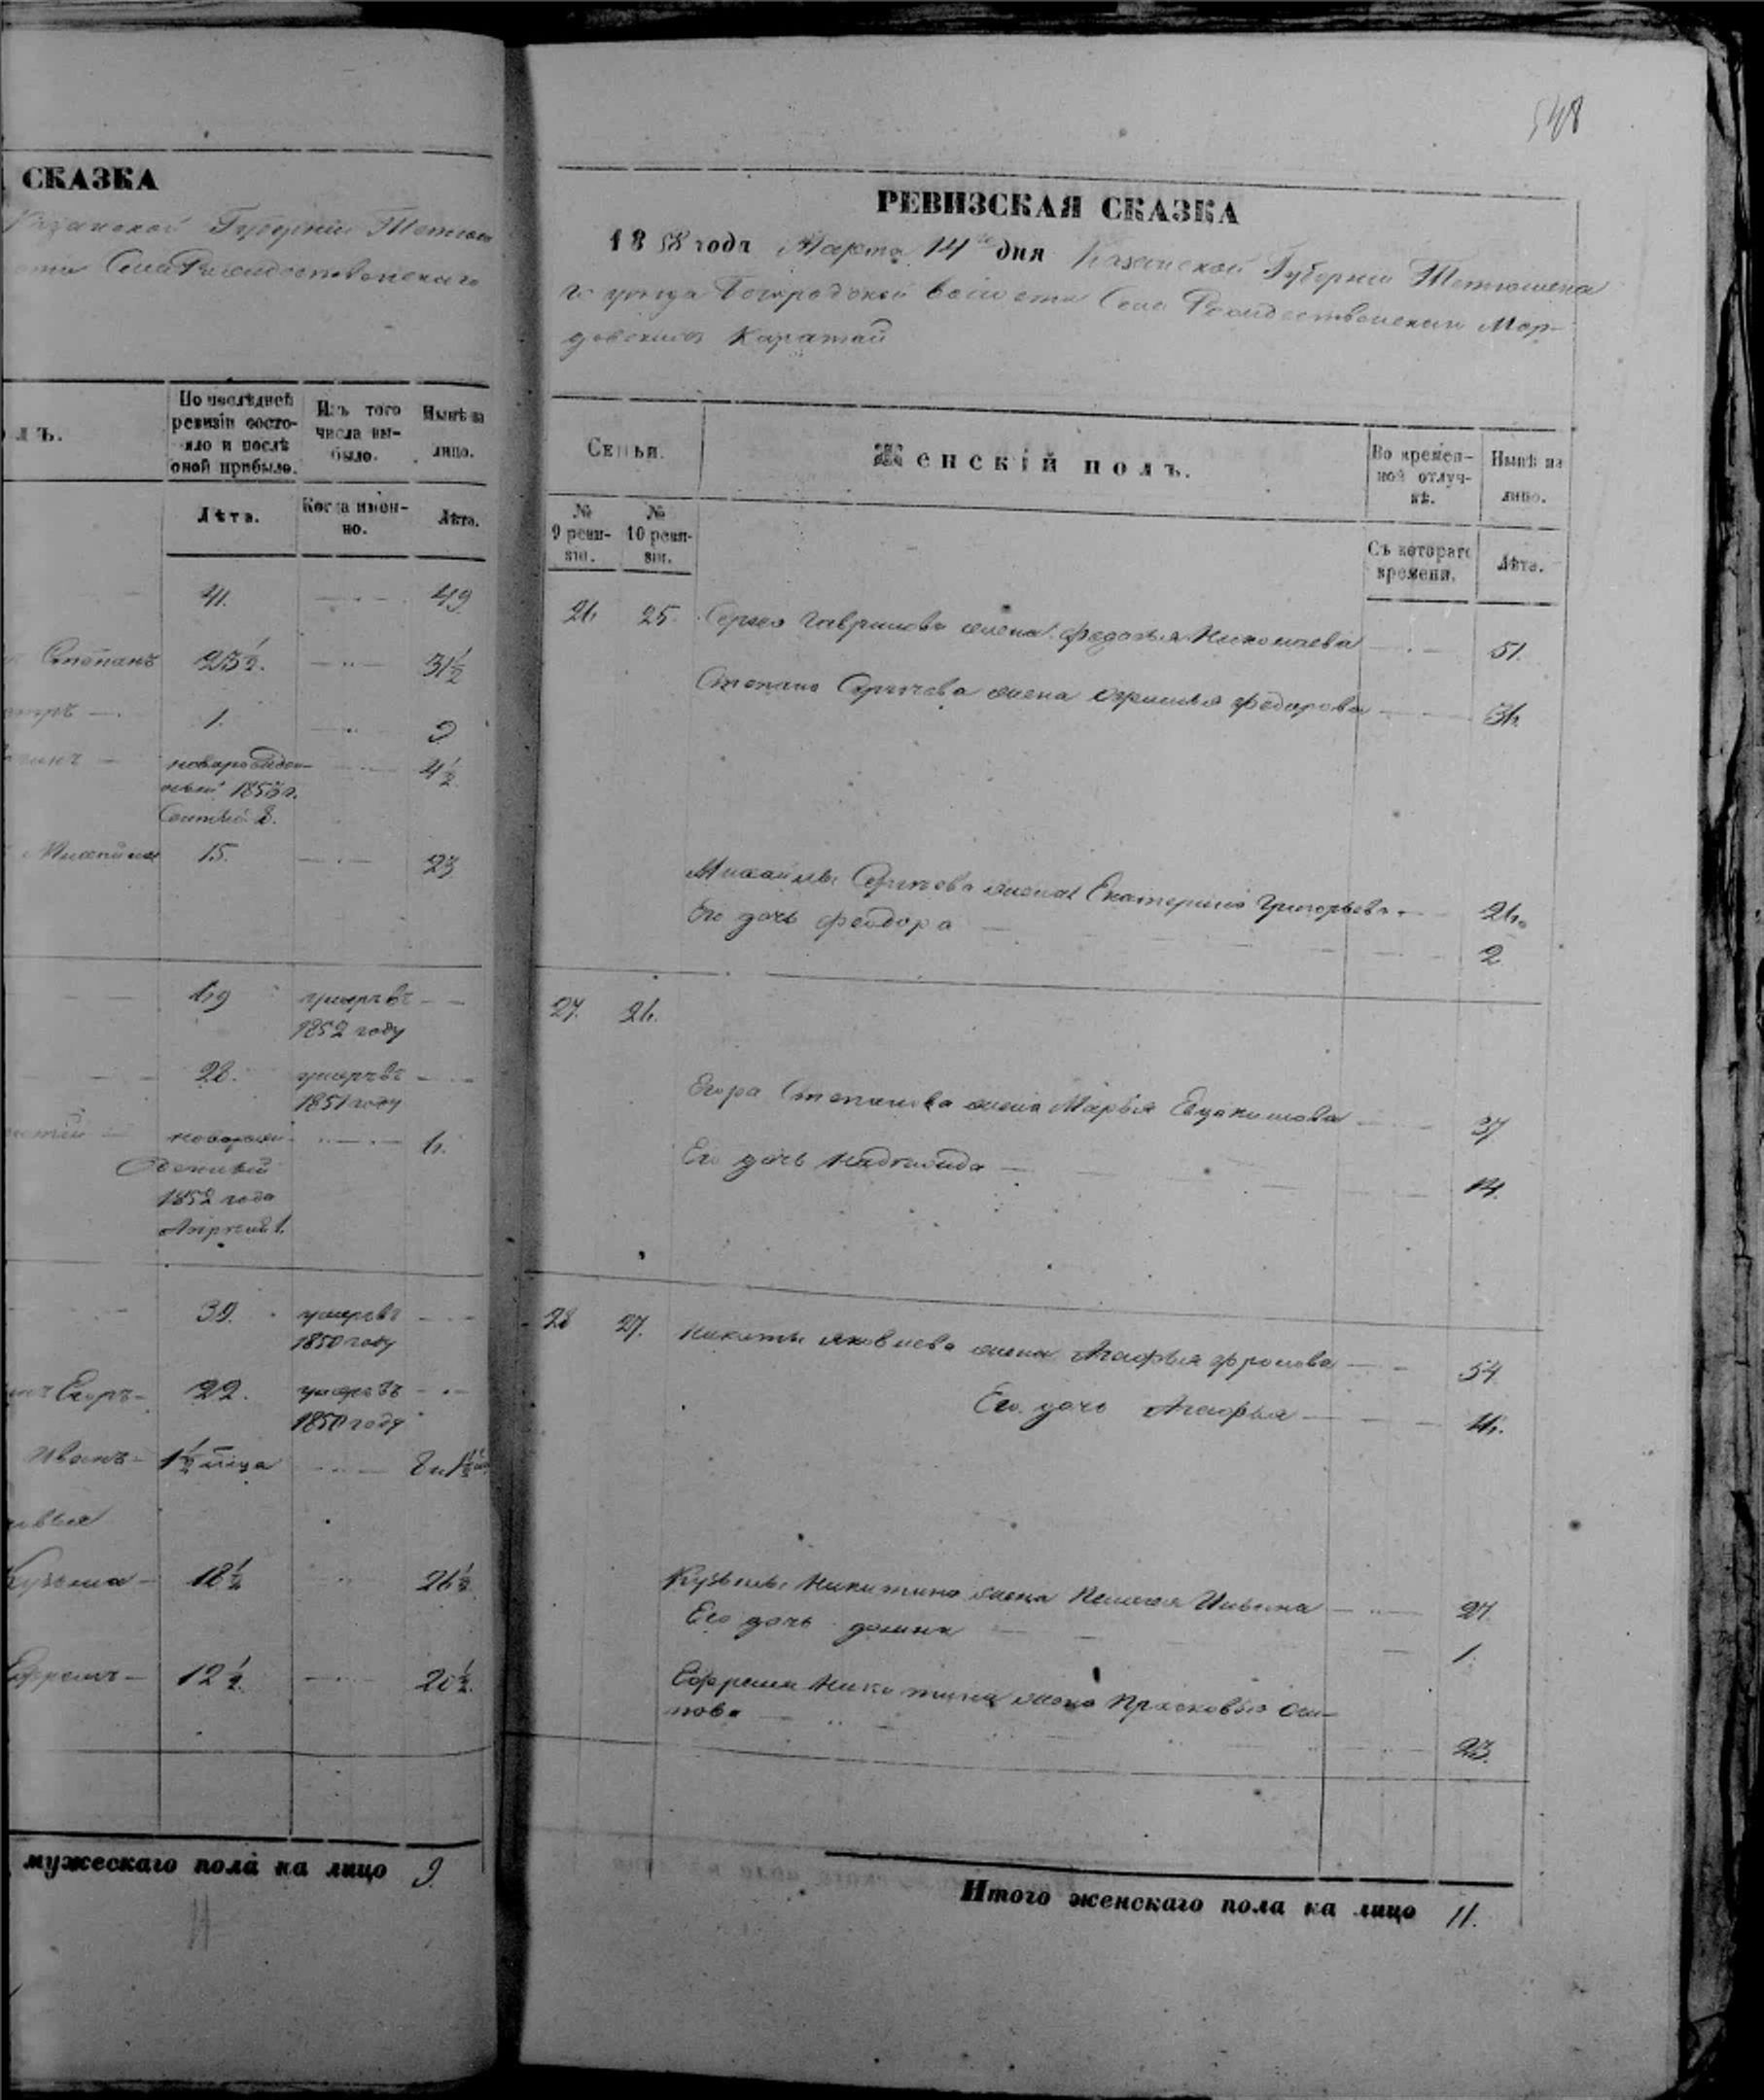 СКАЗКА
Казанской Губернии Тетюш
Села Рождественскаго
лъ.
По послѣдней
ревизіи состо-
яло и послѣ
оной прибыло.
Изъ того
числа вы-
было.
Нынѣ на
лицо.
Лѣта.
Когда имен-
но.
Лѣта.
41. 49
Степанъ 23½. 31½
1. 9
новорожден-
ный 1853 г. 4½
15. 23
49 умеръ въ
1852 году
28. умеръ въ
1851 году
новорож-
денный 6.
1852 года
Апреля 1.
39. умеръ въ
1850 году
Егоръ 22. умеръ въ
1850 году
Иванъ 1½ мѣца
Кузьма 18½ 26½
Ефремъ 12½ 20½
мужескаго пола на лицо 9.
11
548
РЕВИЗСКАЯ СКАЗКА
1858 года Марта 14 дня Казанской Губернии Тетюшска
го уезда Богородской волости Села Рождественскии Мор-
довскиѣ Каратаи
Семьи.
Женскій полъ.
Во времен-
ной отлуч-
кѣ.
Нынѣ на
лицо.
№
9 реви-
зіи.
№
10 реви-
зіи.
Съ котораго
времени.
Лѣта.
26. 25. Сергея Гаврилова жена Федосья Николаева 51.
Степана Сергеева жена Федорова 36.
Михайлы Сергеева жена Екатерина Григорьева 26.
Его дочь Федора 2
27. 26.
Егора Степанова жена Марья Евдокимова 37
Его дочь 14.
28 27. Никиты Яковлева жена Агафья Фролова 54
Его дочь Агафья 16.
Кузьмы Никитина жена Пелагея Ильина 27.
Его дочь Домна 1.
Ефрема Никитина жена Прасковья Оси-
пова 23.
Итого женскаго пола на лицо 11.